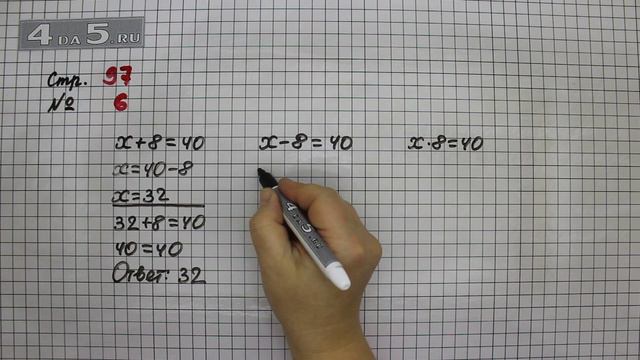 4 DA 5.RU
Стр. 97
№ 6
x+8=40
x=40-8
x=32
32+8=40
40=40
Ответ: 32
x-8=40
x·8=40
4 DA 5.RU